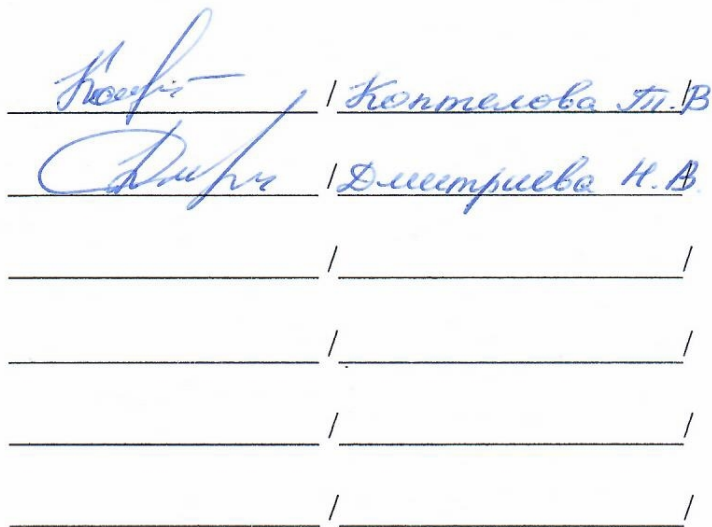 / Коптелова Т.В/
/ Дмитриева Н.В./
/ /
/ /
/ /
/ /